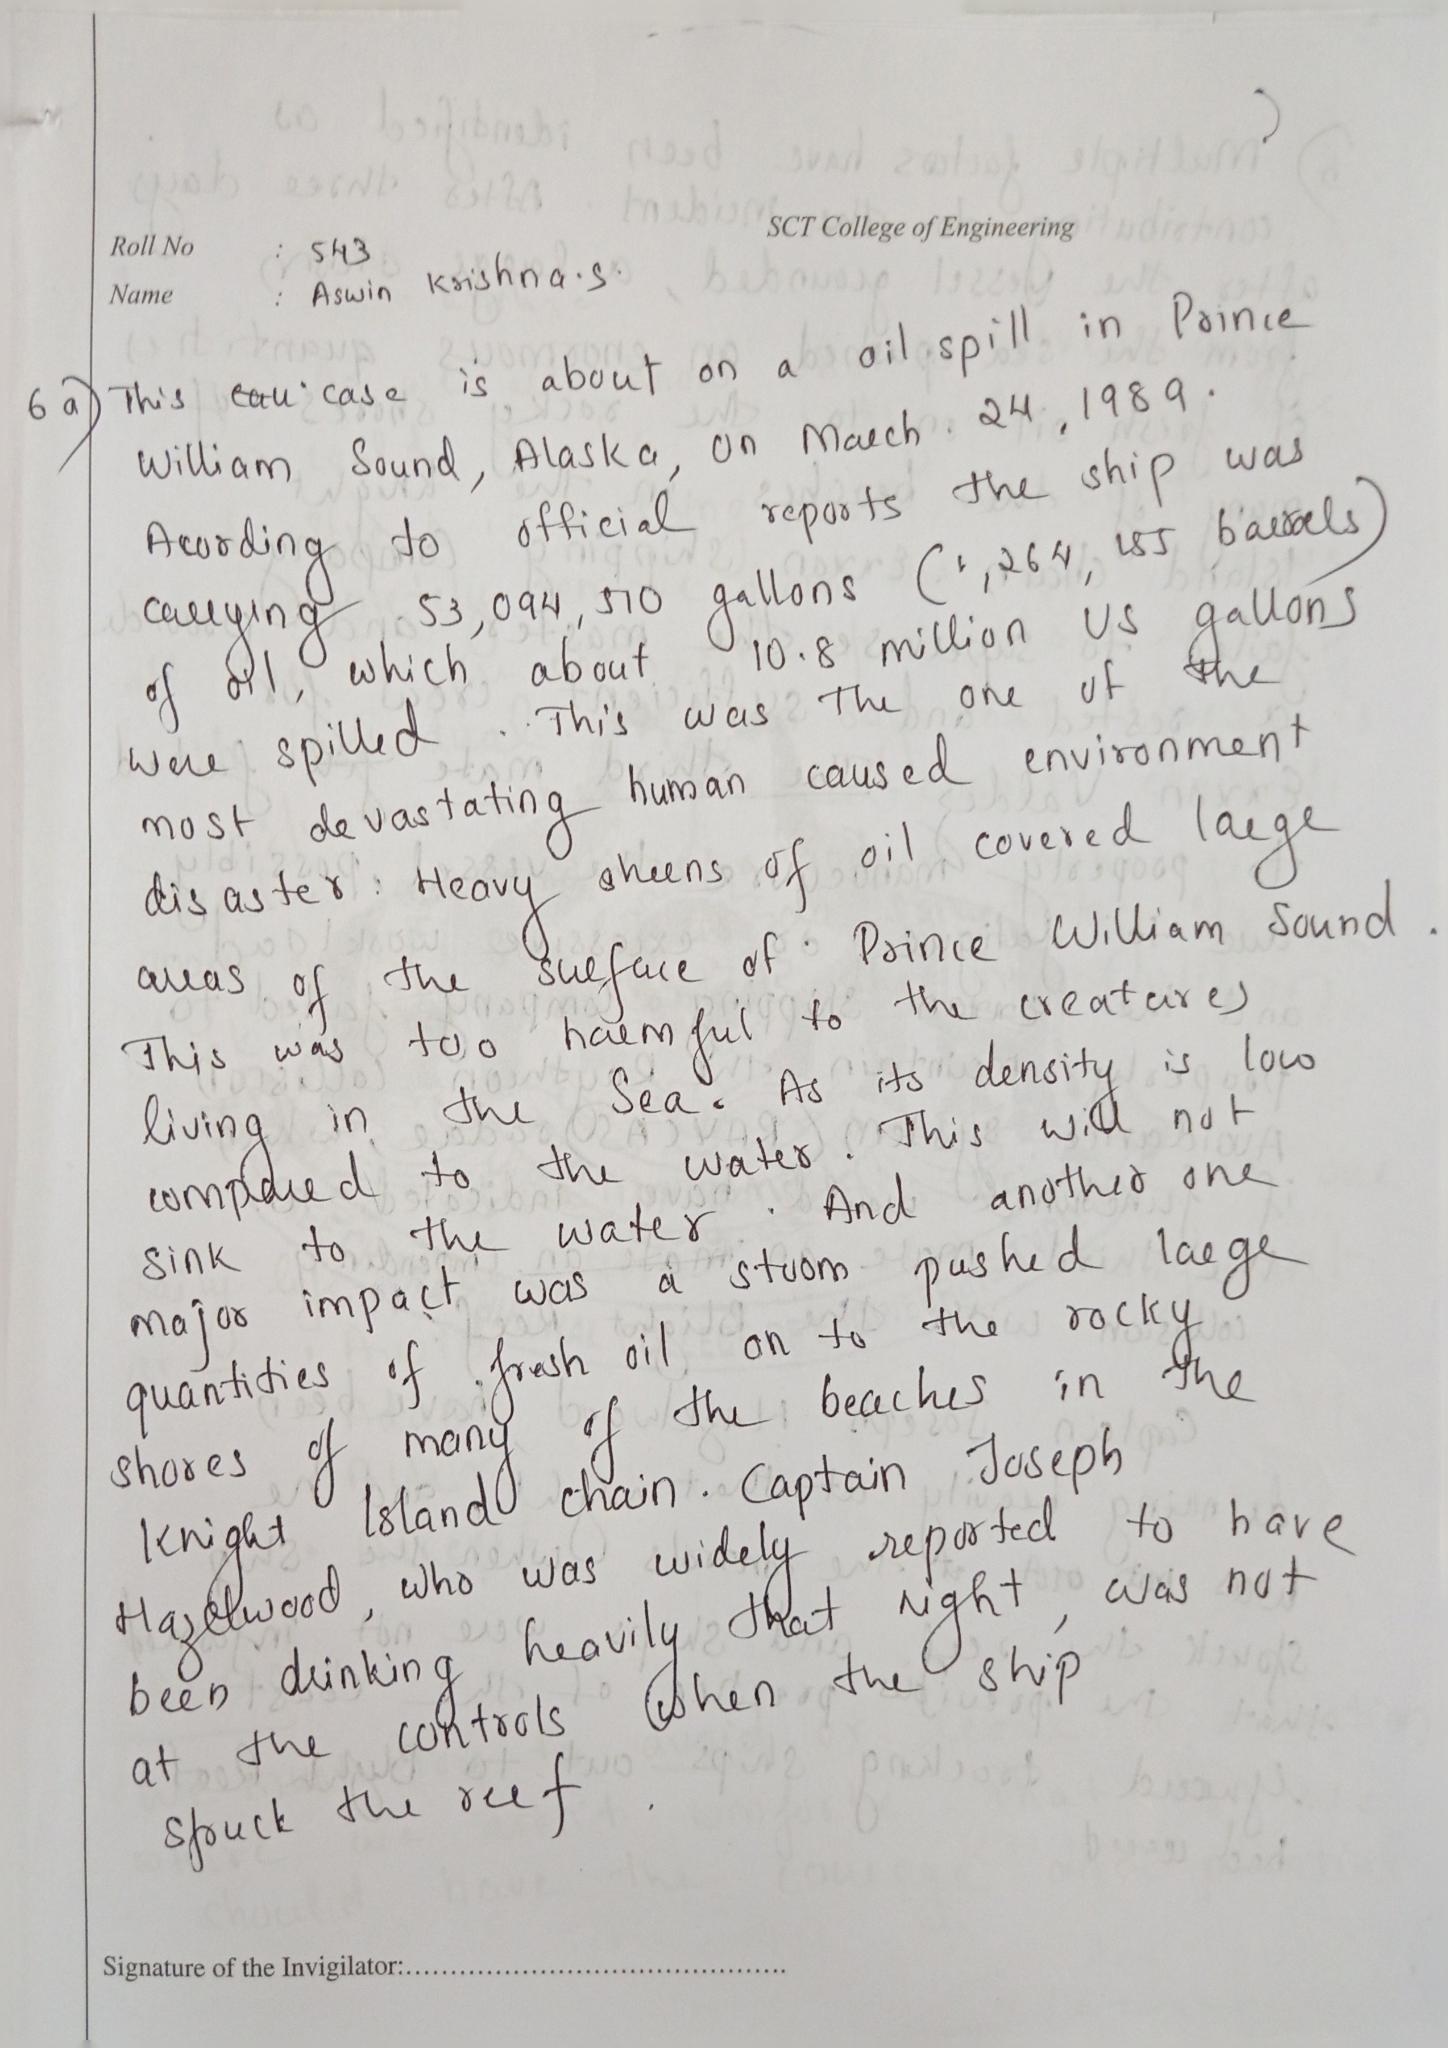 SCT College of Engineering
Roll No : 543
Name : Aswin Krishna.s.
6 a) This case is about on a oil spill in Prince
William Sound, Alaska, on March 24, 1989.
Acording to official reports the ship was
carrying 53,094,510 gallons (1,264,155 barrels)
of oil, which about 10.8 million US gallons
were spilled. This was the one of the
most devastating human caused environment
disaster. Heavy sheens of oil covered large
areas of the surface of Prince William Sound.
This was too harmful to the creatures
living in the Sea. As its density is low
compared to the water. This will not
sink to the water. And another one
major impact was a storm pushed large
quantities of fresh oil on to the rocky
shores of many of the beaches in the
Knight Island chain. Captain Joseph
Hazelwood, who was widely reported to have
been drinking heavily that night, was not
at the controls when the ship
struck the reef.
Signature of the Invigilator:..........................................